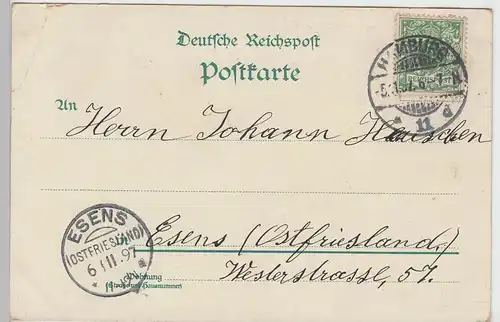 Deutsche Reichspost
Postkarte
HAMBURG
5.11.97.
11 d
An
Herrn Johann
ESENS
(OSTFRIESLAND)
6 11 97
in
Esens (Ostfriesland)
Westerstrasse, 57.
Wohnung
(Straße und Hausnummer)